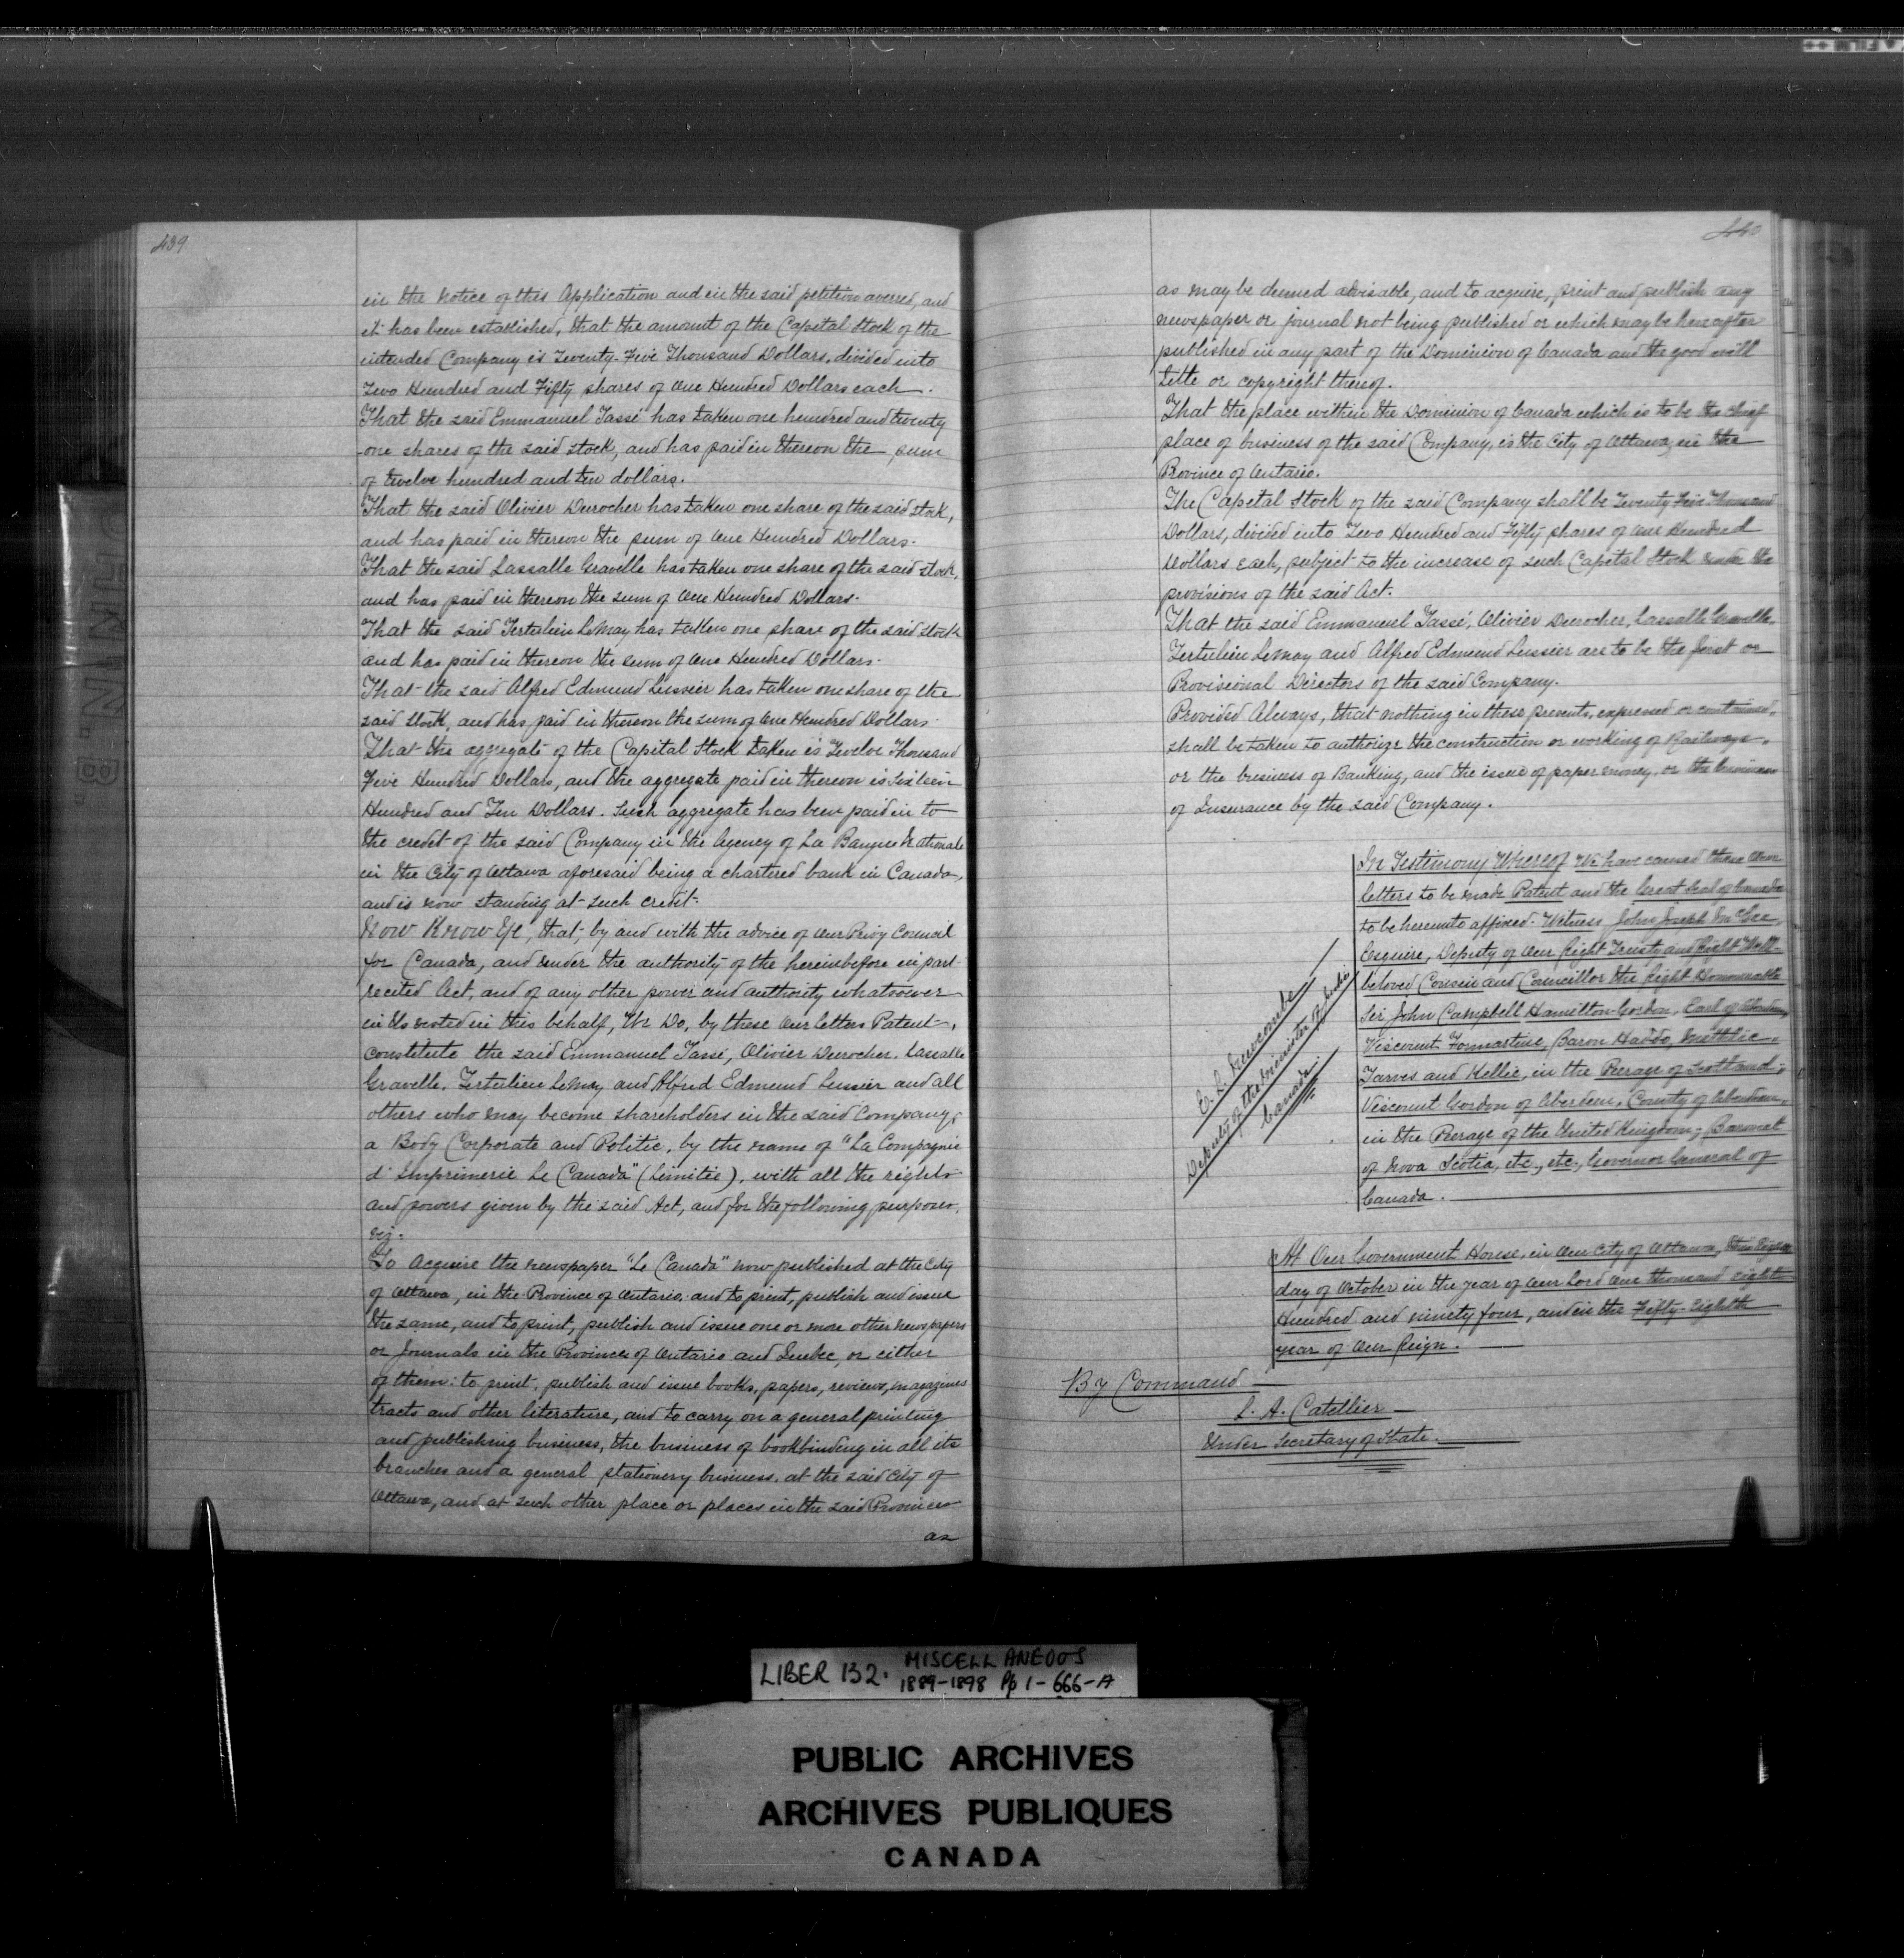 439
in the notice of this Application and in the said petition averred, and
it has been established, that the amount of the Capital Stock of the
intended Company is Twenty-Five Thousand Dollars, divided into
Two Hundred and Fifty shares of One Hundred Dollars each.
That the said Emmanuel Tassé has taken one hundred and twenty
-one shares of the said stock, and has paid in thereon the sum
of twelve hundred and ten dollars.
That the said Olivier Durocher has taken one share of the said stock,
and has paid in thereon the sum of One Hundred Dollars.
That the said Lassalle Gravelle has taken one share of the said stock,
and has paid in thereon the sum of One Hundred Dollars.
That the said Tertulien LeMay has taken one share of the said stock
and has paid in thereon the sum of One Hundred Dollars.
That the said Alfred Edmund Lussier has taken one share of the
said stock, and has paid in thereon the sum of One Hundred Dollars.
That the aggregate of the Capital Stock taken is Twelve Thousand
Five Hundred Dollars, and the aggregate paid in thereon is Sixteen
Hundred and Ten Dollars. Such aggregate has been paid in to
the credit of the said Company in the Agency of La Banque Nationale
in the City of Ottawa aforesaid being a chartered bank in Canada,
and is now standing at such credit.
Now Know Ye, that, by and with the advice of Our Privy Council
for Canada, and under the authority of the hereinbefore in part
recited Act, and of any other power and authority whatsoever
in Us vested in this behalf, We Do, by these Our Letters Patent,
constitute the said Emmanuel Tassé, Olivier Durocher, Lassalle
Gravelle, Tertulien LeMay and Alfred Edmund Lussier and all
others who may become shareholders in the said Company,
a Body Corporate and Politic, by the name of "La Compagnie
d'Imprimerie Le Canada" (Limitée), with all the rights
and powers given by the said Act, and for the following purposes,
viz.
To Acquire the newspaper "Le Canada" now published at the City
of Ottawa, in the Province of Ontario, and to print, publish and issue
the same, and to print, publish and issue one or more other newspapers
or Journals in the Provinces of Ontario and Quebec, or either
of them: to print, publish and issue books, papers, reviews, magazines
tracts and other literature, and to carry on a general printing
and publishing business, the business of bookbinding in all its
branches and a general stationery business, at the said City of
Ottawa, and at such other place or places in the said Provinces
as
440
as may be deemed advisable, and to acquire, print and publish any
newspaper or journal not being published or which may be hereafter
published in any part of the Dominion of Canada and the good will
title or copyright thereof.
That the place within the Dominion of Canada which is to be the chief
place of business of the said Company, is the City of Ottawa, in the
Province of Ontario.
The Capital Stock of the said Company shall be Twenty Five Thousand
Dollars, divided into Two Hundred and Fifty shares of One Hundred
Dollars each, subject to the increase of such Capital Stock under the
provisions of the said Act.
That the said Emmanuel Tassé, Olivier Durocher, Lassalle Gravelle,
Tertulien LeMay and Alfred Edmund Lussier are to be the first or
Provisional Directors of the said Company.
Provided Always, that nothing in these presents, expressed or contained,
shall be taken to authorize the construction or working of Railways,
or the business of Banking, and the issue of paper money, or the business
of Insurance by the said Company.
In Testimony Whereof We have caused these Our
Letters to be made Patent and the Great Seal of Canada
to be hereunto affixed. Witness John Joseph McGee,
Esquire, Deputy of Our Right Trusty and Right Well-
beloved Cousin and Councillor the Right Honourable
Sir John Campbell Hamilton-Gordon, Earl of Aberdeen,
Viscount Formartine, Baron Haddo, Methlic,
Tarves and Kellie, in the Peerage of Scotland;
Viscount Gordon of Aberdeen, County of Aberdeen,
in the Peerage of the United Kingdom; Baronet
of Nova Scotia, etc., etc., Governor General of
Canada.
E. L. Newcombe
Deputy of the Minister of Justice
Canada
At Our Government House, in Our City of Ottawa, this
day of October in the year of Our Lord One thousand eight
Hundred and ninety four, and in the Fifty-Eighth
year of Our Reign.
By Command
L. A. Catellier
Under Secretary of State.
LIBER 132. MISCELLANEOUS
1889-1898 Pp 1-666-A
PUBLIC ARCHIVES
ARCHIVES PUBLIQUES
CANADA